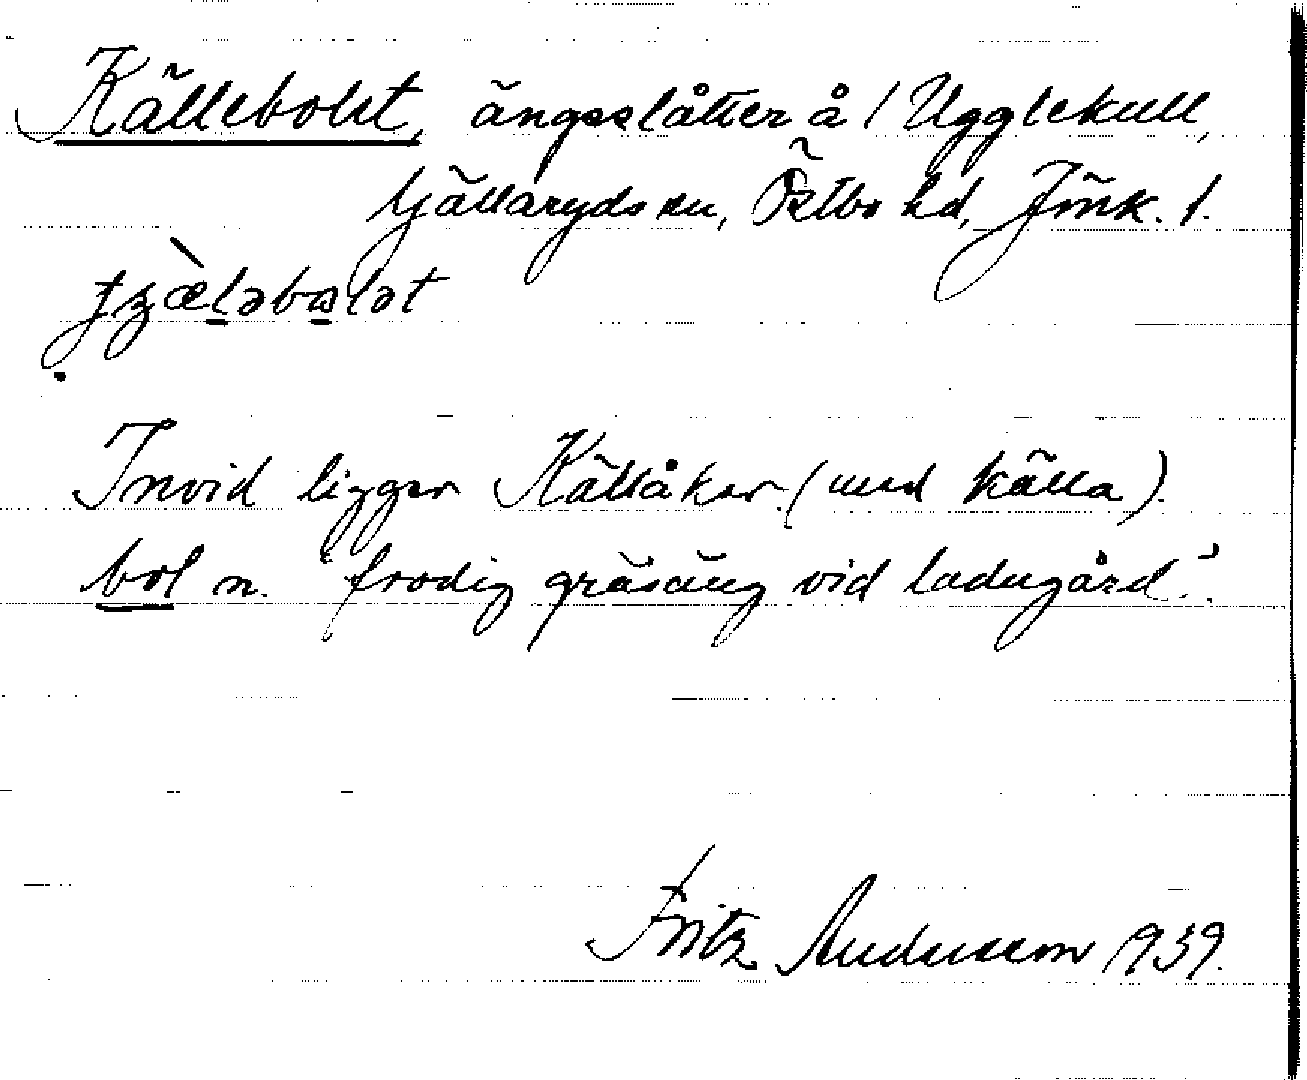 Källebolet, ängsslåtter å / Ugglekull,
Gällaryds sn, Östbo hd, Jönk. l.
Invid ligger Källåker (med källa).
bol n. "frodig gräsäng vid ladugård".
Fritz Andersson 1939.